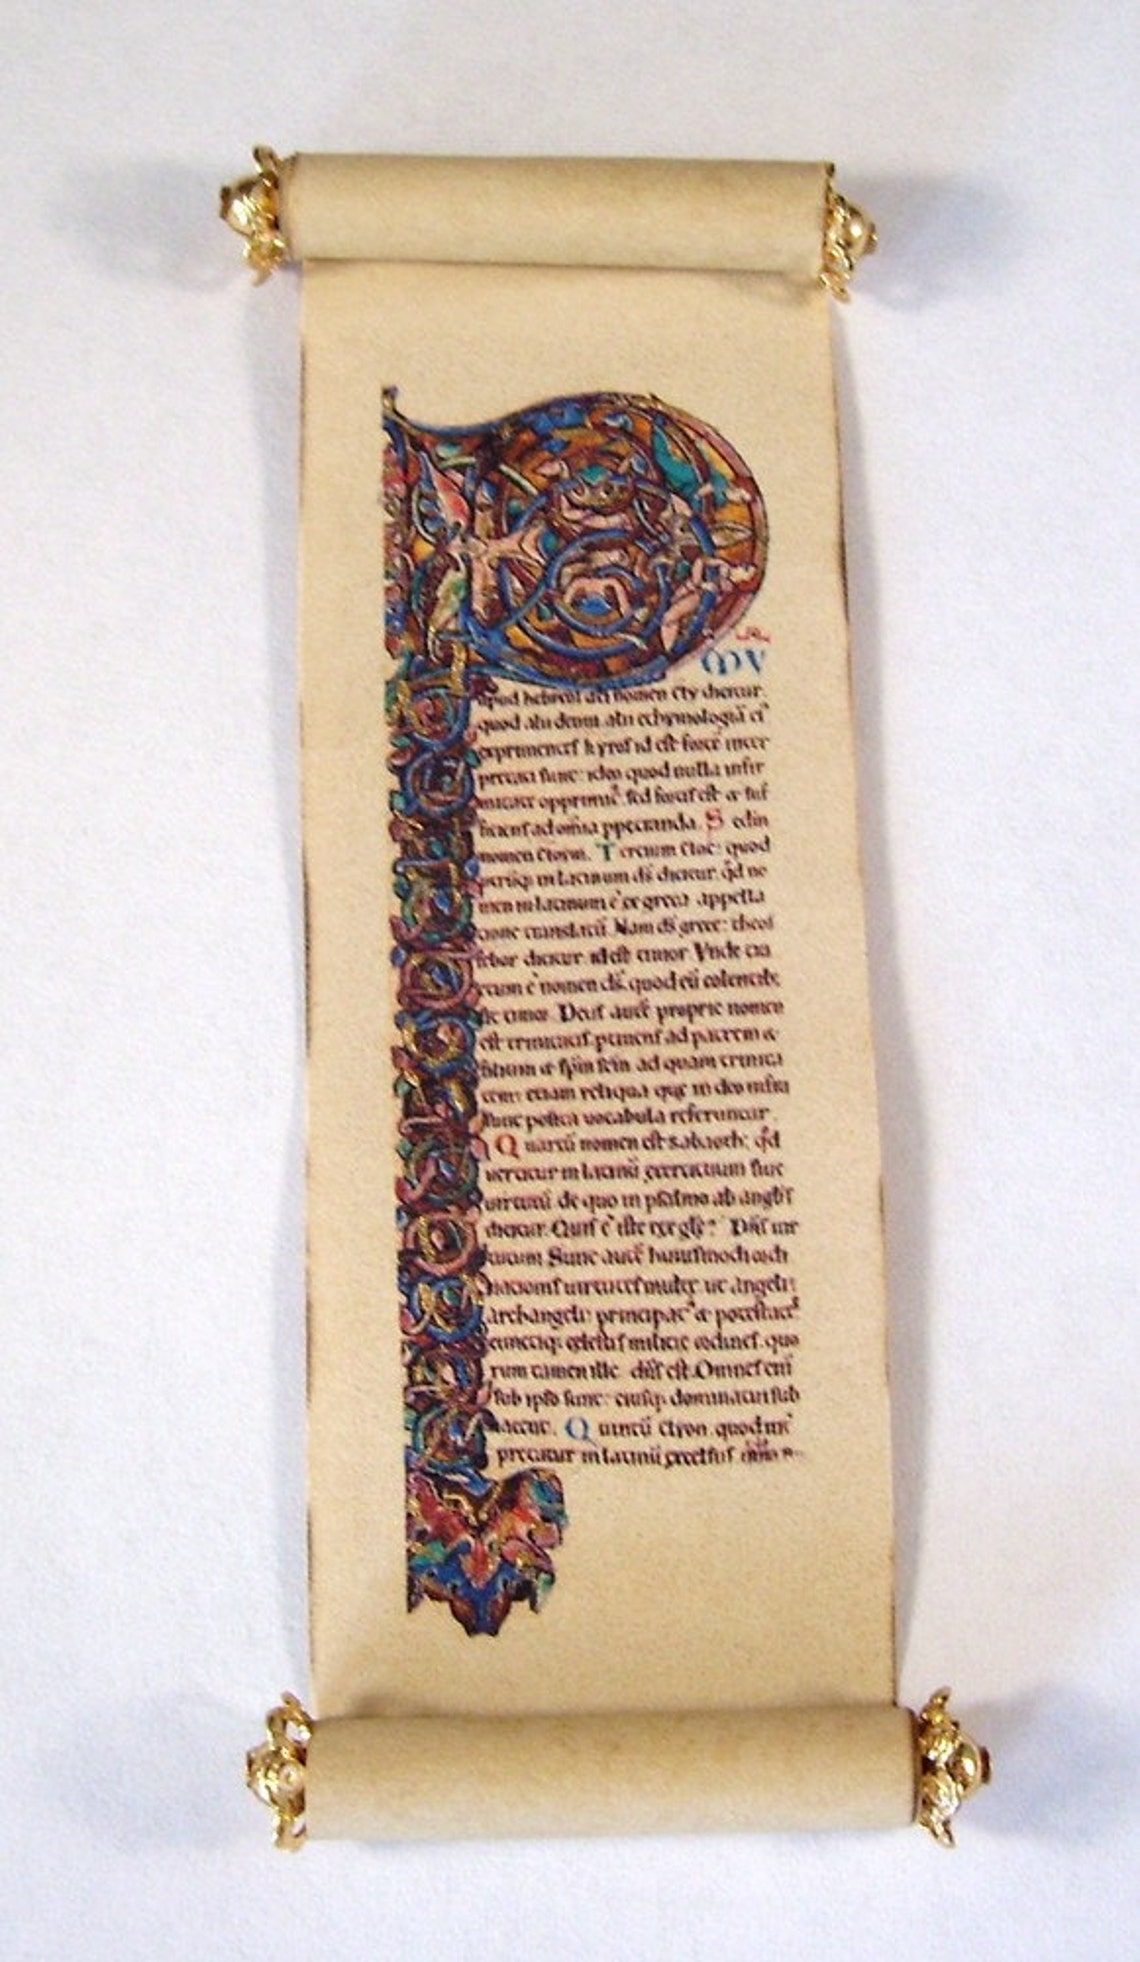 MV
apud hebreos dei nomen Ely dicitur.
quod alii deum. alii ethymologiā ei'
exprimentes kyros id est forte inter
pretati sunt: ideo quod nulla infir
mitate opprimit. sed fortis est & suf
ficiens ad omīa ppetranda. S edin
nomen Eloim. T ertium Eloe: quod
utrūq; in latinum ds̄ dicitur. qd̄ no
men in latinum ē ex greca appella
tione translatū. Nam ds̄ grece: theos
febos dicitur id est timor. Vnde tra
ctum ē nomen ds̄. quod eū colentib;
sit timor. Deus autē proprie nomen
est trinitatis. ptinens ad patrem &
filium & sp̄m sc̄m ad quam trinita
tem: etiam reliqua que in deo infra
sunt posita vocabula referuntur.
Q uartū nomen est sabaoth: qd̄
uertitur in latinū exercituum siue
uirtutū de quo in psalmo ab anglis
dicitur. Quis ē iste rex glē? Dn̄s uir
tutum Sunt autē huiusmodi ordi
nationis uirtutes multe. ut angeli:
archangeli: principat' & potestates
cuncteq; celestis militie ordines. quo
rum tamen ille dn̄s est. Omnes eni
sub ipso sunt: eiusq; dominatui sub
iacent. Q uintū Elyon. quod int'
pretatur in latinū excelsus